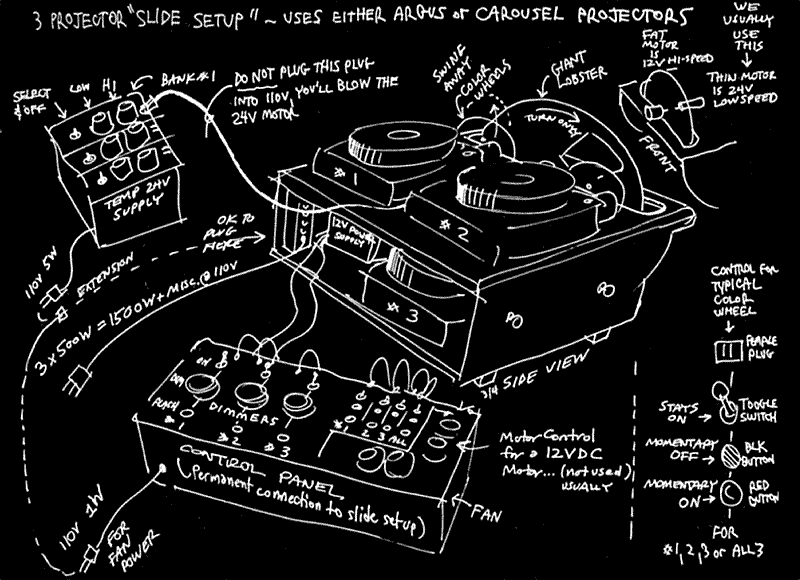 3 PROJECTOR "SLIDE SETUP" ~ USES EITHER ARGUS or CAROUSEL PROJECTORS
WE
USUALLY
USE
THIS
FAT
MOTOR
IS
12V HI-SPEED
THIN MOTOR
IS 24V
LOW SPEED
FRONT
SELECT
& OFF
LOW
HI
BANK #1
DO NOT PLUG THIS PLUG
INTO 110V, YOU'LL BLOW THE
24V MOTOR
SWING
AWAY
COLOR
WHEELS
GIANT
LOBSTER
TURN ONLY
TEMP 24V
SUPPLY
#1
#2
12V POWER
SUPPLY
#3
OK TO
PLUG
HERE
110V 5W
EXTENSION
3 x 500W = 1500W + MISC. @ 110V
3/4 SIDE VIEW
ON
DIM
FLASH
DIMMERS
#1
#2
#3
#1
2
3
ALL
CONTROL PANEL
(Permanent connection to slide setup)
Motor Control
for a 12VDC
Motor... (not used)
USUALLY
FAN
110V 1W
FOR
FAN
POWER
CONTROL FOR
TYPICAL
COLOR
WHEEL
FEMALE
PLUG
STAYS
ON
TOGGLE
SWITCH
MOMENTARY
OFF
BLK
BUTTON
MOMENTARY
ON
RED
BUTTON
FOR
#1, 2, 3 or ALL 3